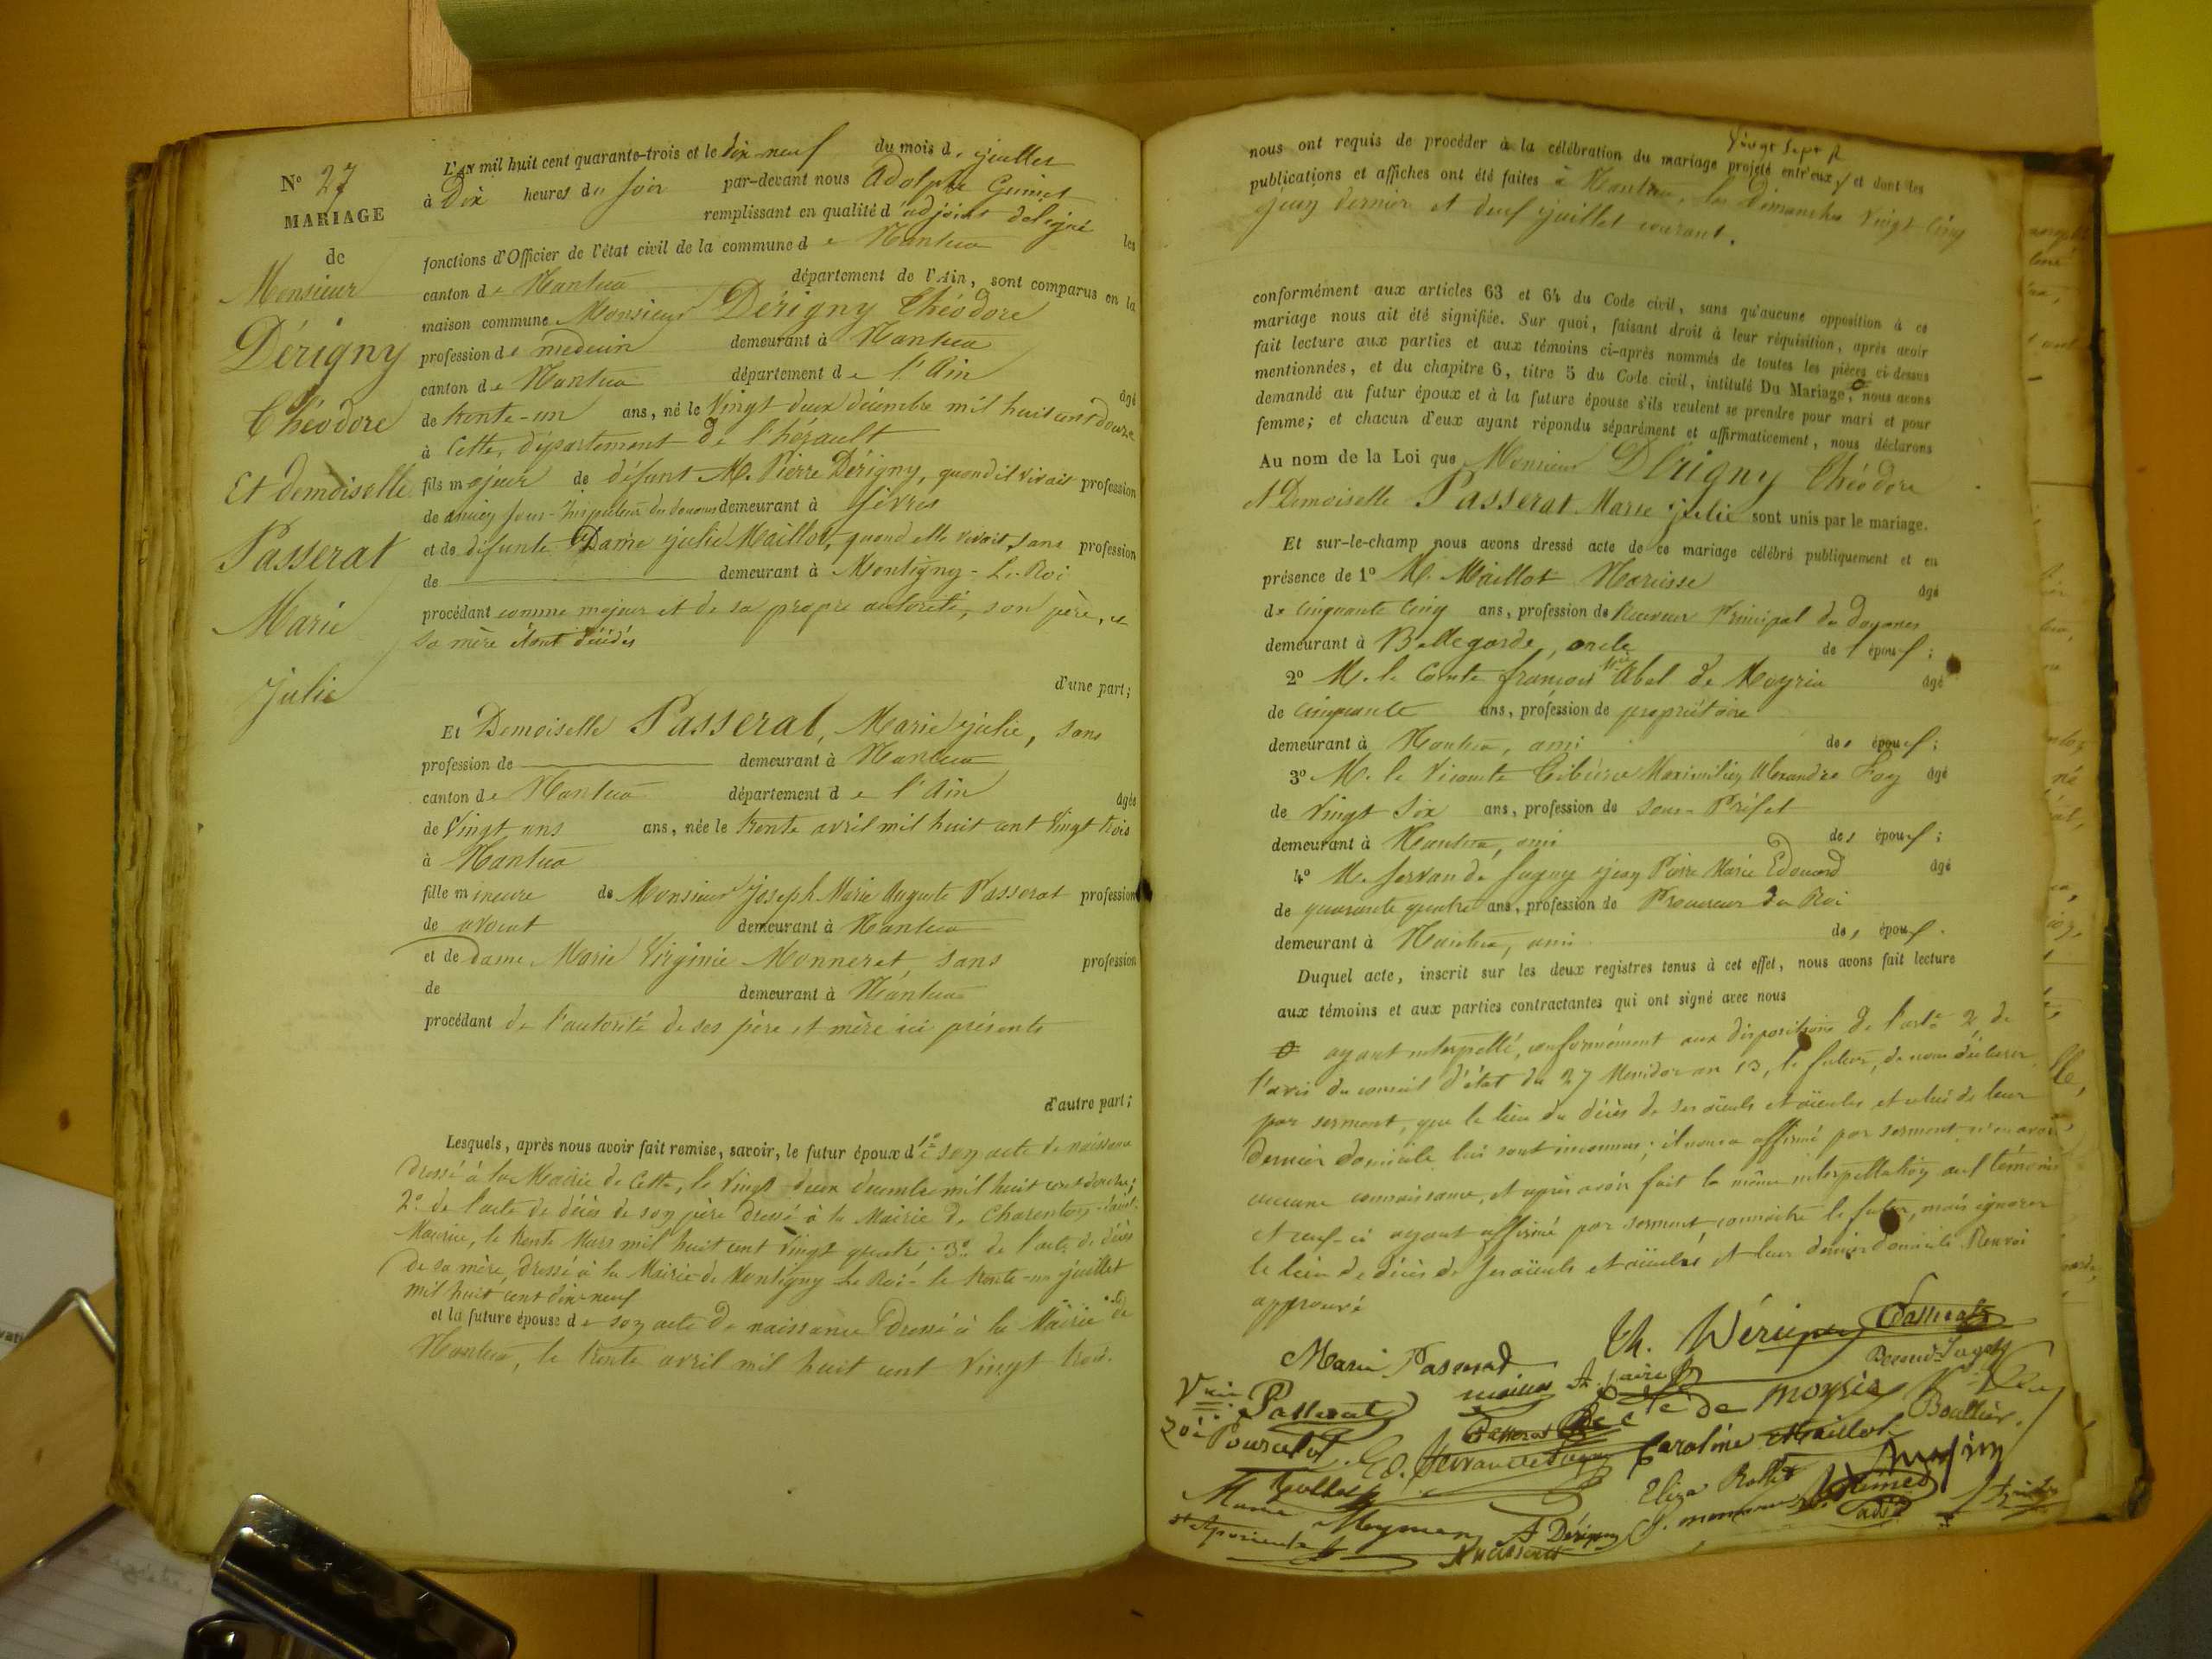 N° 27
MARIAGE
de
Monsieur
Dérigny
Théodore
Et demoiselle
Passerat
Marie
Julie
L'an mil huit cent quarante-trois et le dix-neuf du mois de juillet
à Dix heures du soir par-devant nous Adolphe Guinet
remplissant en qualité d'adjoint délégué les
fonctions d'Officier de l'état civil de la commune de Nantua
canton de Nantua département de l'Ain, sont comparus en la
maison commune Monsieur Dérigny Théodore
profession de médecin demeurant à Nantua
canton de Nantua département de l'Ain âgé
de trente-un ans, né le Vingt deux décembre mil huit cent douze
à Cette, département de l'hérault
fils majeur de défunt M. Pierre Dérigny, quand il vivait profession
de ancien sous-Inspecteur des douanes demeurant à Sèvres
et de défunte Dame Julie Maillot, quand elle vivait, sans profession
de demeurant à Montigny-Le-Roi
procédant comme majeur et de sa propre autorité, son père, et
sa mère étant décédés
d'une part;
Et Demoiselle Passerat, Marie Julie, sans
profession de demeurant à Nantua
canton de Nantua département de l'Ain âgée
de Vingt ans ans, née le trente avril mil huit cent Vingt trois
à Nantua
fille mineure de Monsieur Joseph Marie Auguste Passerat profession
de avocat demeurant à Nantua
et de dame Marie Virginie Monneret, sans profession
de demeurant à Nantua
procédant de l'autorité de ses père et mère ici présents
d'autre part;
Lesquels, après nous avoir fait remise, savoir, le futur époux de 1° son acte de naissance
dressé à la Mairie de Cette, le Vingt-deux décembre mil huit cent douze;
2° de l'acte de décès de son père dressé à la Mairie de Charenton-Saint-
Maurice, le trente Mars mil huit cent vingt quatre; 3° de l'acte de décès
de sa mère, dressé à la Mairie de Montigny Le Roi le trente-un juillet
mil huit cent dix-neuf
et la future épouse de son acte de naissance dressé à la Mairie de
Nantua, le trente avril mil huit cent Vingt trois.
nous ont requis de procéder à la célébration du mariage projeté entr'eux, et dont les
publications et affiches ont été faites à Nantua, les Dimanches Vingt Cinq
juin dernier et deux juillet courant.
conformément aux articles 63 et 64 du Code civil, sans qu'aucune opposition à ce
mariage nous ait été signifiée. Sur quoi, faisant droit à leur réquisition, après avoir
fait lecture aux parties et aux témoins ci-après nommés de toutes les pièces ci-dessus
mentionnées, et du chapitre 6, titre 5 du Code civil, intitulé Du Mariage, nous avons
demandé au futur époux et à la future épouse s'ils veulent se prendre pour mari et pour
femme; et chacun d'eux ayant répondu séparément et affirmativement, nous déclarons
Au nom de la Loi que Monsieur Dérigny Théodore
et Demoiselle Passerat Marie Julie sont unis par le mariage.
Et sur-le-champ nous avons dressé acte de ce mariage célébré publiquement et en
présence de 1° M. Maillot Narcisse âgé
de cinquante cinq ans, profession de Receveur Principal des Douanes
demeurant à Bellegarde, oncle de l'époux;
2° M. le Comte François Abel de Moyria âgé
de cinquante ans, profession de propriétaire
demeurant à Nantua, ami des époux;
3° M. le Vicomte Tiburce Maximilien Alexandre Foy âgé
de Vingt Six ans, profession de Sous-Préfet
demeurant à Nantua, ami des époux;
4° M. Servan de Sugny Jean Pierre Marie Edouard âgé
de quarante quatre ans, profession de Procureur du Roi
demeurant à Nantua, ami des époux.
Duquel acte, inscrit sur les deux registres tenus à cet effet, nous avons fait lecture
aux témoins et aux parties contractantes qui ont signé avec nous
ayant interpellé, conformément aux dispositions de l'arte 2 de
l'avis du conseil d'état du 27 Messidor an 13, le futur, de nous déclarer
par serment, que le lieu du décès de ses aïeuls et aïeules et celui de leur
dernier domicile lui sont inconnus; il nous a affirmé par serment n'en avoir
aucune connaissance, et après avoir fait la même interpellation aux témoins
et ceux-ci ayant affirmé par serment connaître le futur, mais ignorer
le lieu de décès de ses aïeuls et aïeules et leur dernier domicile. Renvoi
approuvé
Th. Dérigny Passerat
Marie Passerat
Passerat Cte de Moyria Bouttier
Zoé Pourcelot Caroline Maillot
Eliza Rollet
Marie Meynier A Dérigny